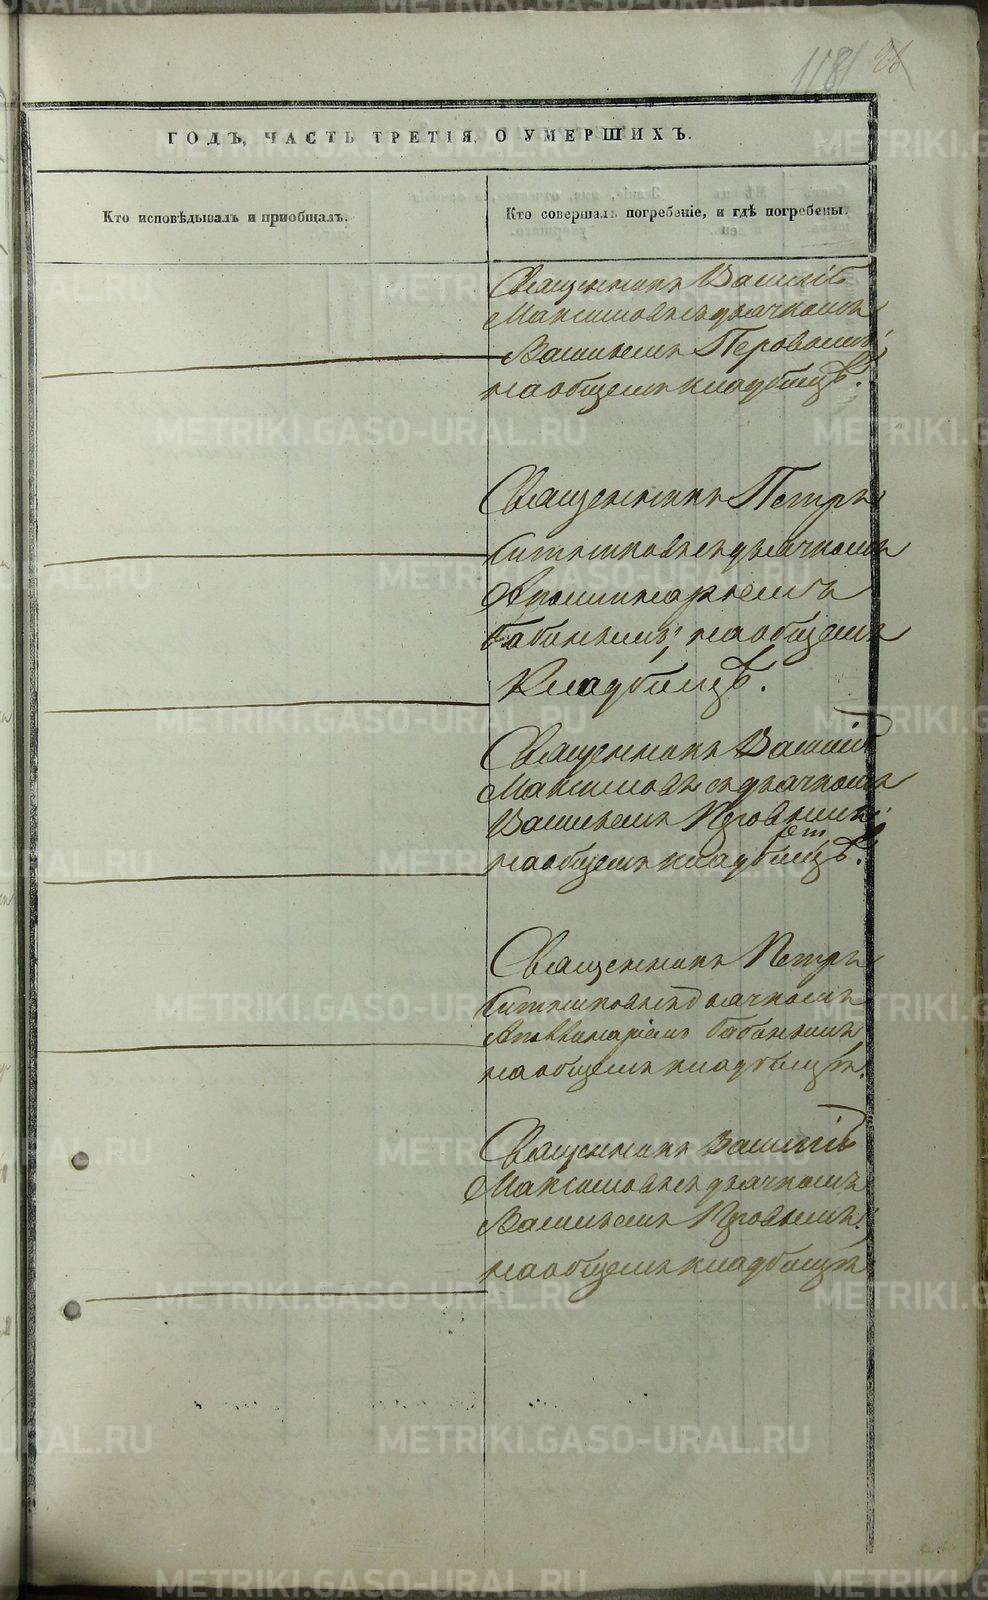 1181 26
ГОДЪ, ЧАСТЬ ТРЕТІЯ, О УМЕРШИХЪ.
Кто исповѣдывалъ и пріобщалъ.
Кто совершалъ погребеніе, и гдѣ погребены.
Священникъ Василій
Максимовъ съ дьячкомъ
Васильемъ Перовымъ;
на общемъ кладбищѣ.
Священникъ Петръ
съ дьячкомъ
Аполинарьемъ
Бабинымъ; на общемъ
Кладбищѣ.
Священникъ Василій
Максимовъ съ дьячкомъ
Васильемъ Перовымъ;
на общемъ кладбищѣ.
Священникъ Петръ
съ дьячкомъ
Бабинымъ
на общемъ кладбищѣ.
Священникъ Василій
Максимовъ съ дьячкомъ
Васильемъ Перовымъ;
на общемъ кладбищѣ
METRIKI.GASO-URAL.RU